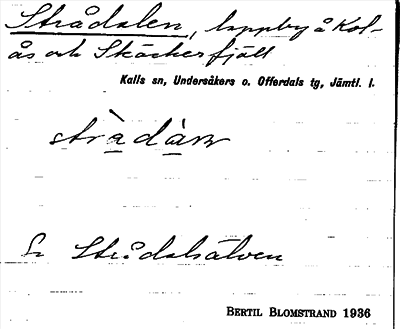 Strådalen, lappby å Kol-
ås och Skäckerfjäll
Kalls sn, Undersåkers o. Offerdals tg, Jämtl. l.
stràdàn
Se Strådalsälven
BERTIL BLOMSTRAND 1936